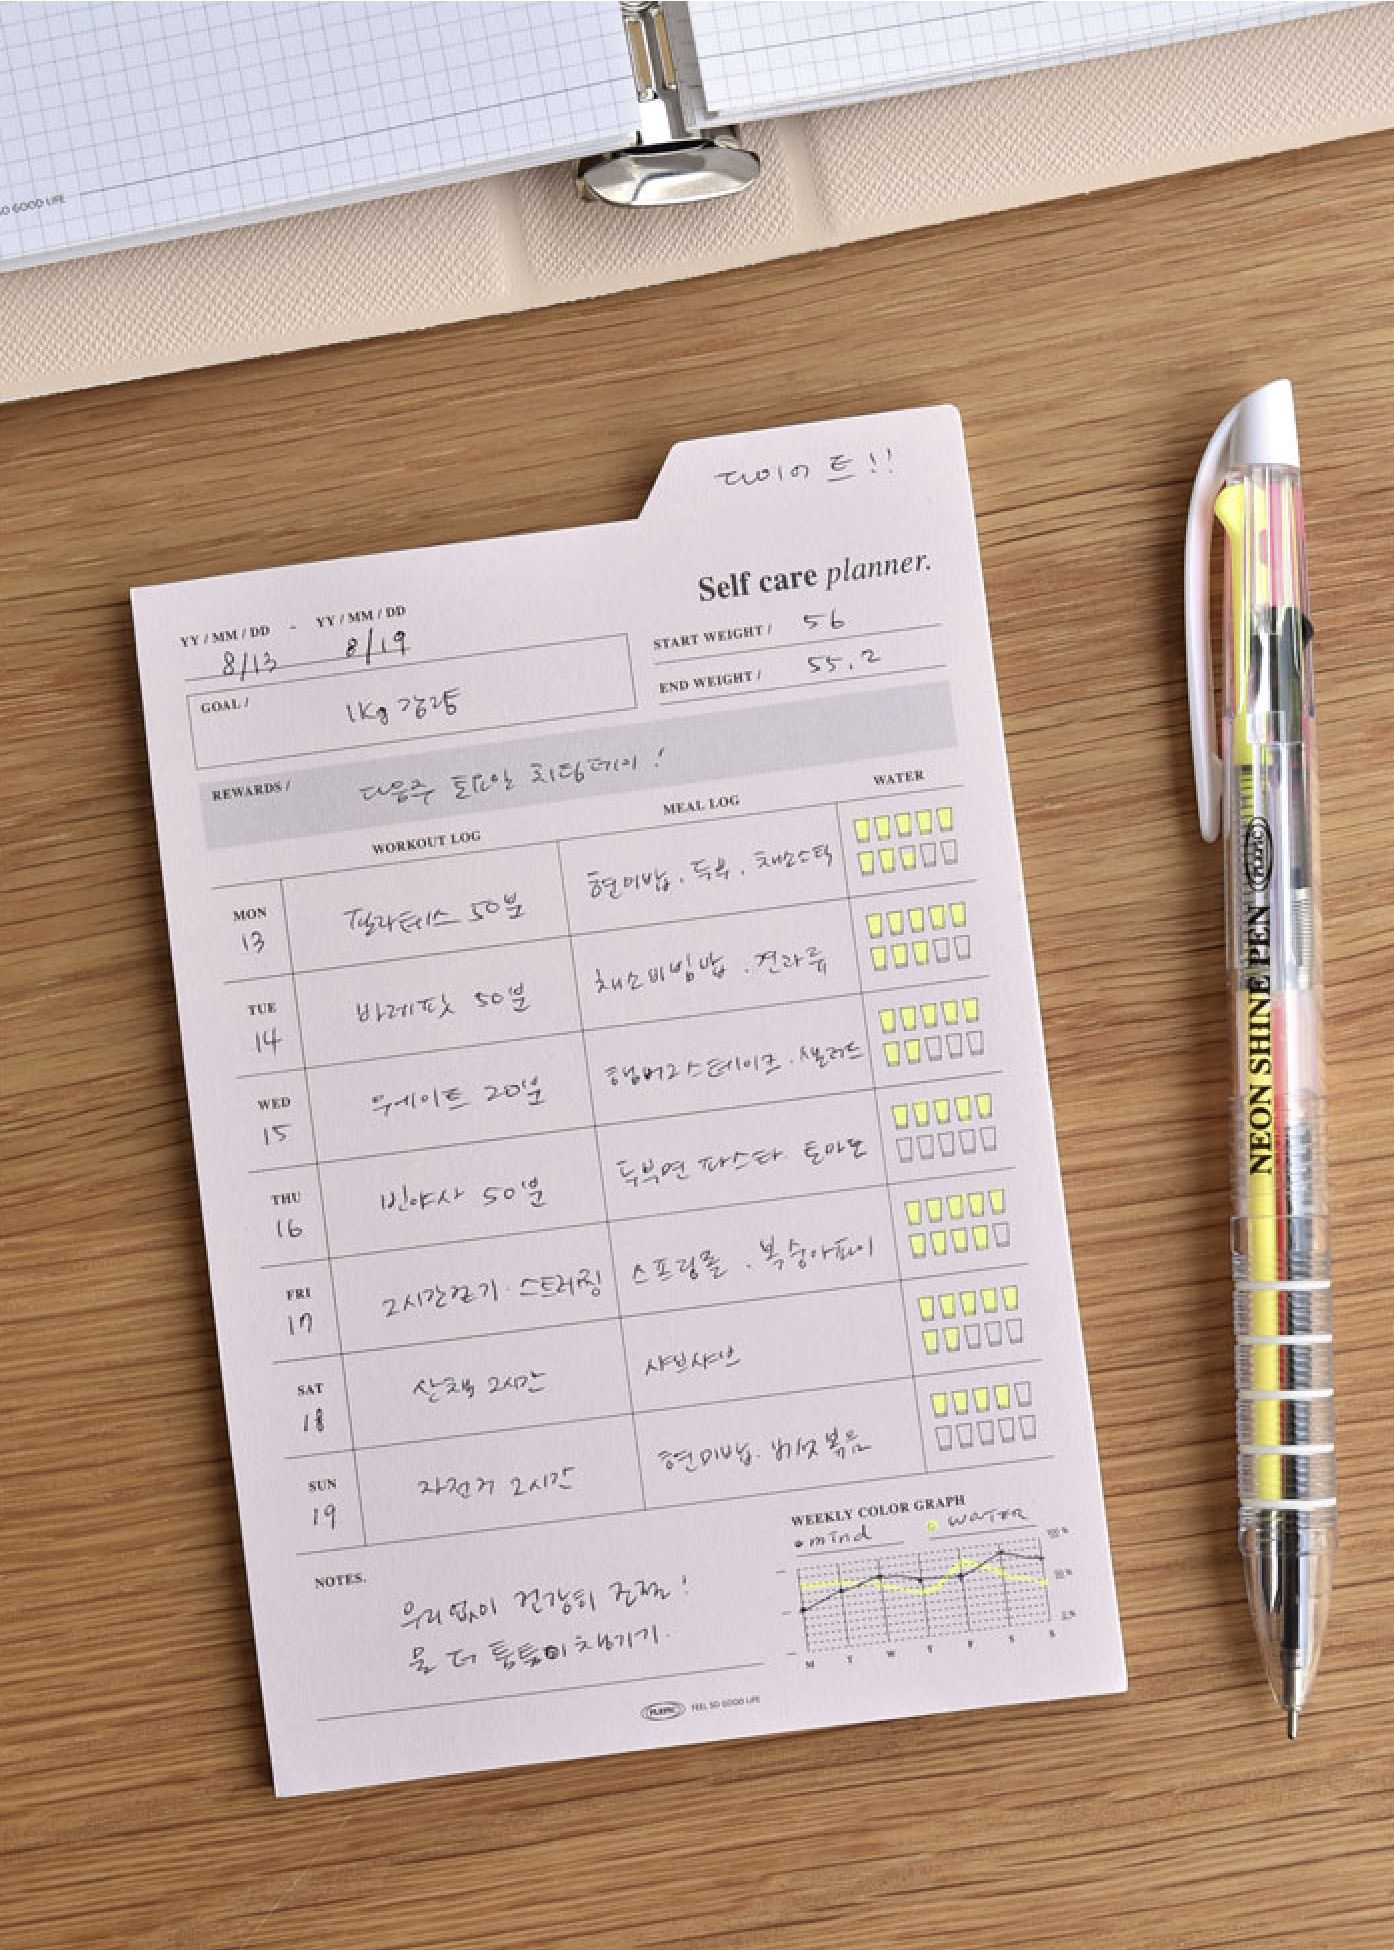 SO GOOD LIFE
다이어트!!
Self care planner.
YY / MM / DD - YY / MM / DD
8/13 8/19
START WEIGHT / 56
END WEIGHT / 55.2
GOAL / 1Kg 감량
REWARDS / 다음주 토요일 치팅데이!
WORKOUT LOG MEAL LOG WATER
MON 13 필라테스 50분 현미밥. 두부. 채소스틱
TUE 14 바레핏 50분 채소비빔밥. 견과류
WED 15 웨이트 20분 햄버그스테이크. 샐러드
THU 16 빈야사 50분 두부면 파스타. 토마토
FRI 17 2시간걷기. 스트레칭 스프링롤. 복숭아파이
SAT 18 산책 2시간 샤브샤브
SUN 19 자전거 2시간 현미밥. 버섯볶음
NOTES.
무리없이 건강히 조절!
물 더 틈틈이 챙기기.
WEEKLY COLOR GRAPH
mind water
M T W T F S S
PLEPIC FEEL SO GOOD LIFE
PLEPIC NEON SHINE PEN